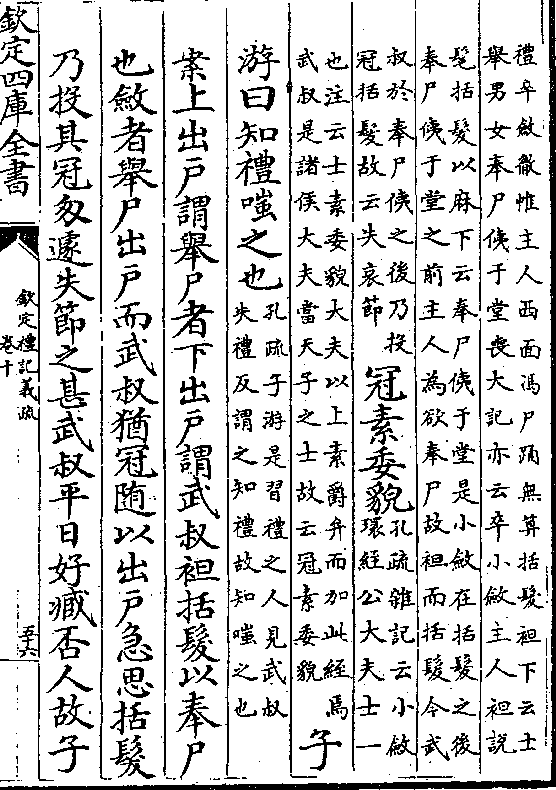 禮卒斂徹帷主人西面馮尸踊無算括髮袒下云士
舉男女奉尸侇于堂喪大記亦云卒小斂主人袒説
髦括髮以麻下云奉尸侇于堂是小斂在括髮之後
奉尸侇于堂之前主人為欲奉尸故袒而括髮今武
叔於奉尸侇之後乃投
冠括髮故云失哀節
冠素委貌
孔疏雜記云小斂
環絰公大夫士一
也注云士素委貌大夫以上素爵弁而加此絰焉
武叔是諸侯大夫當天子之士故云冠素委貌
子
游曰知禮嗤之也
孔疏子游是習禮之人見武叔
失禮反謂之知禮故知嗤之也
案上出戶謂舉尸者下出戶謂武叔袒括髮以奉尸
也斂者舉尸出戶而武叔猶冠随以出戶急思括髮
乃投其冠匆遽失節之甚武叔平日好臧否人故子
欽定四庫全書
欽定禮記義疏
卷十
五十六